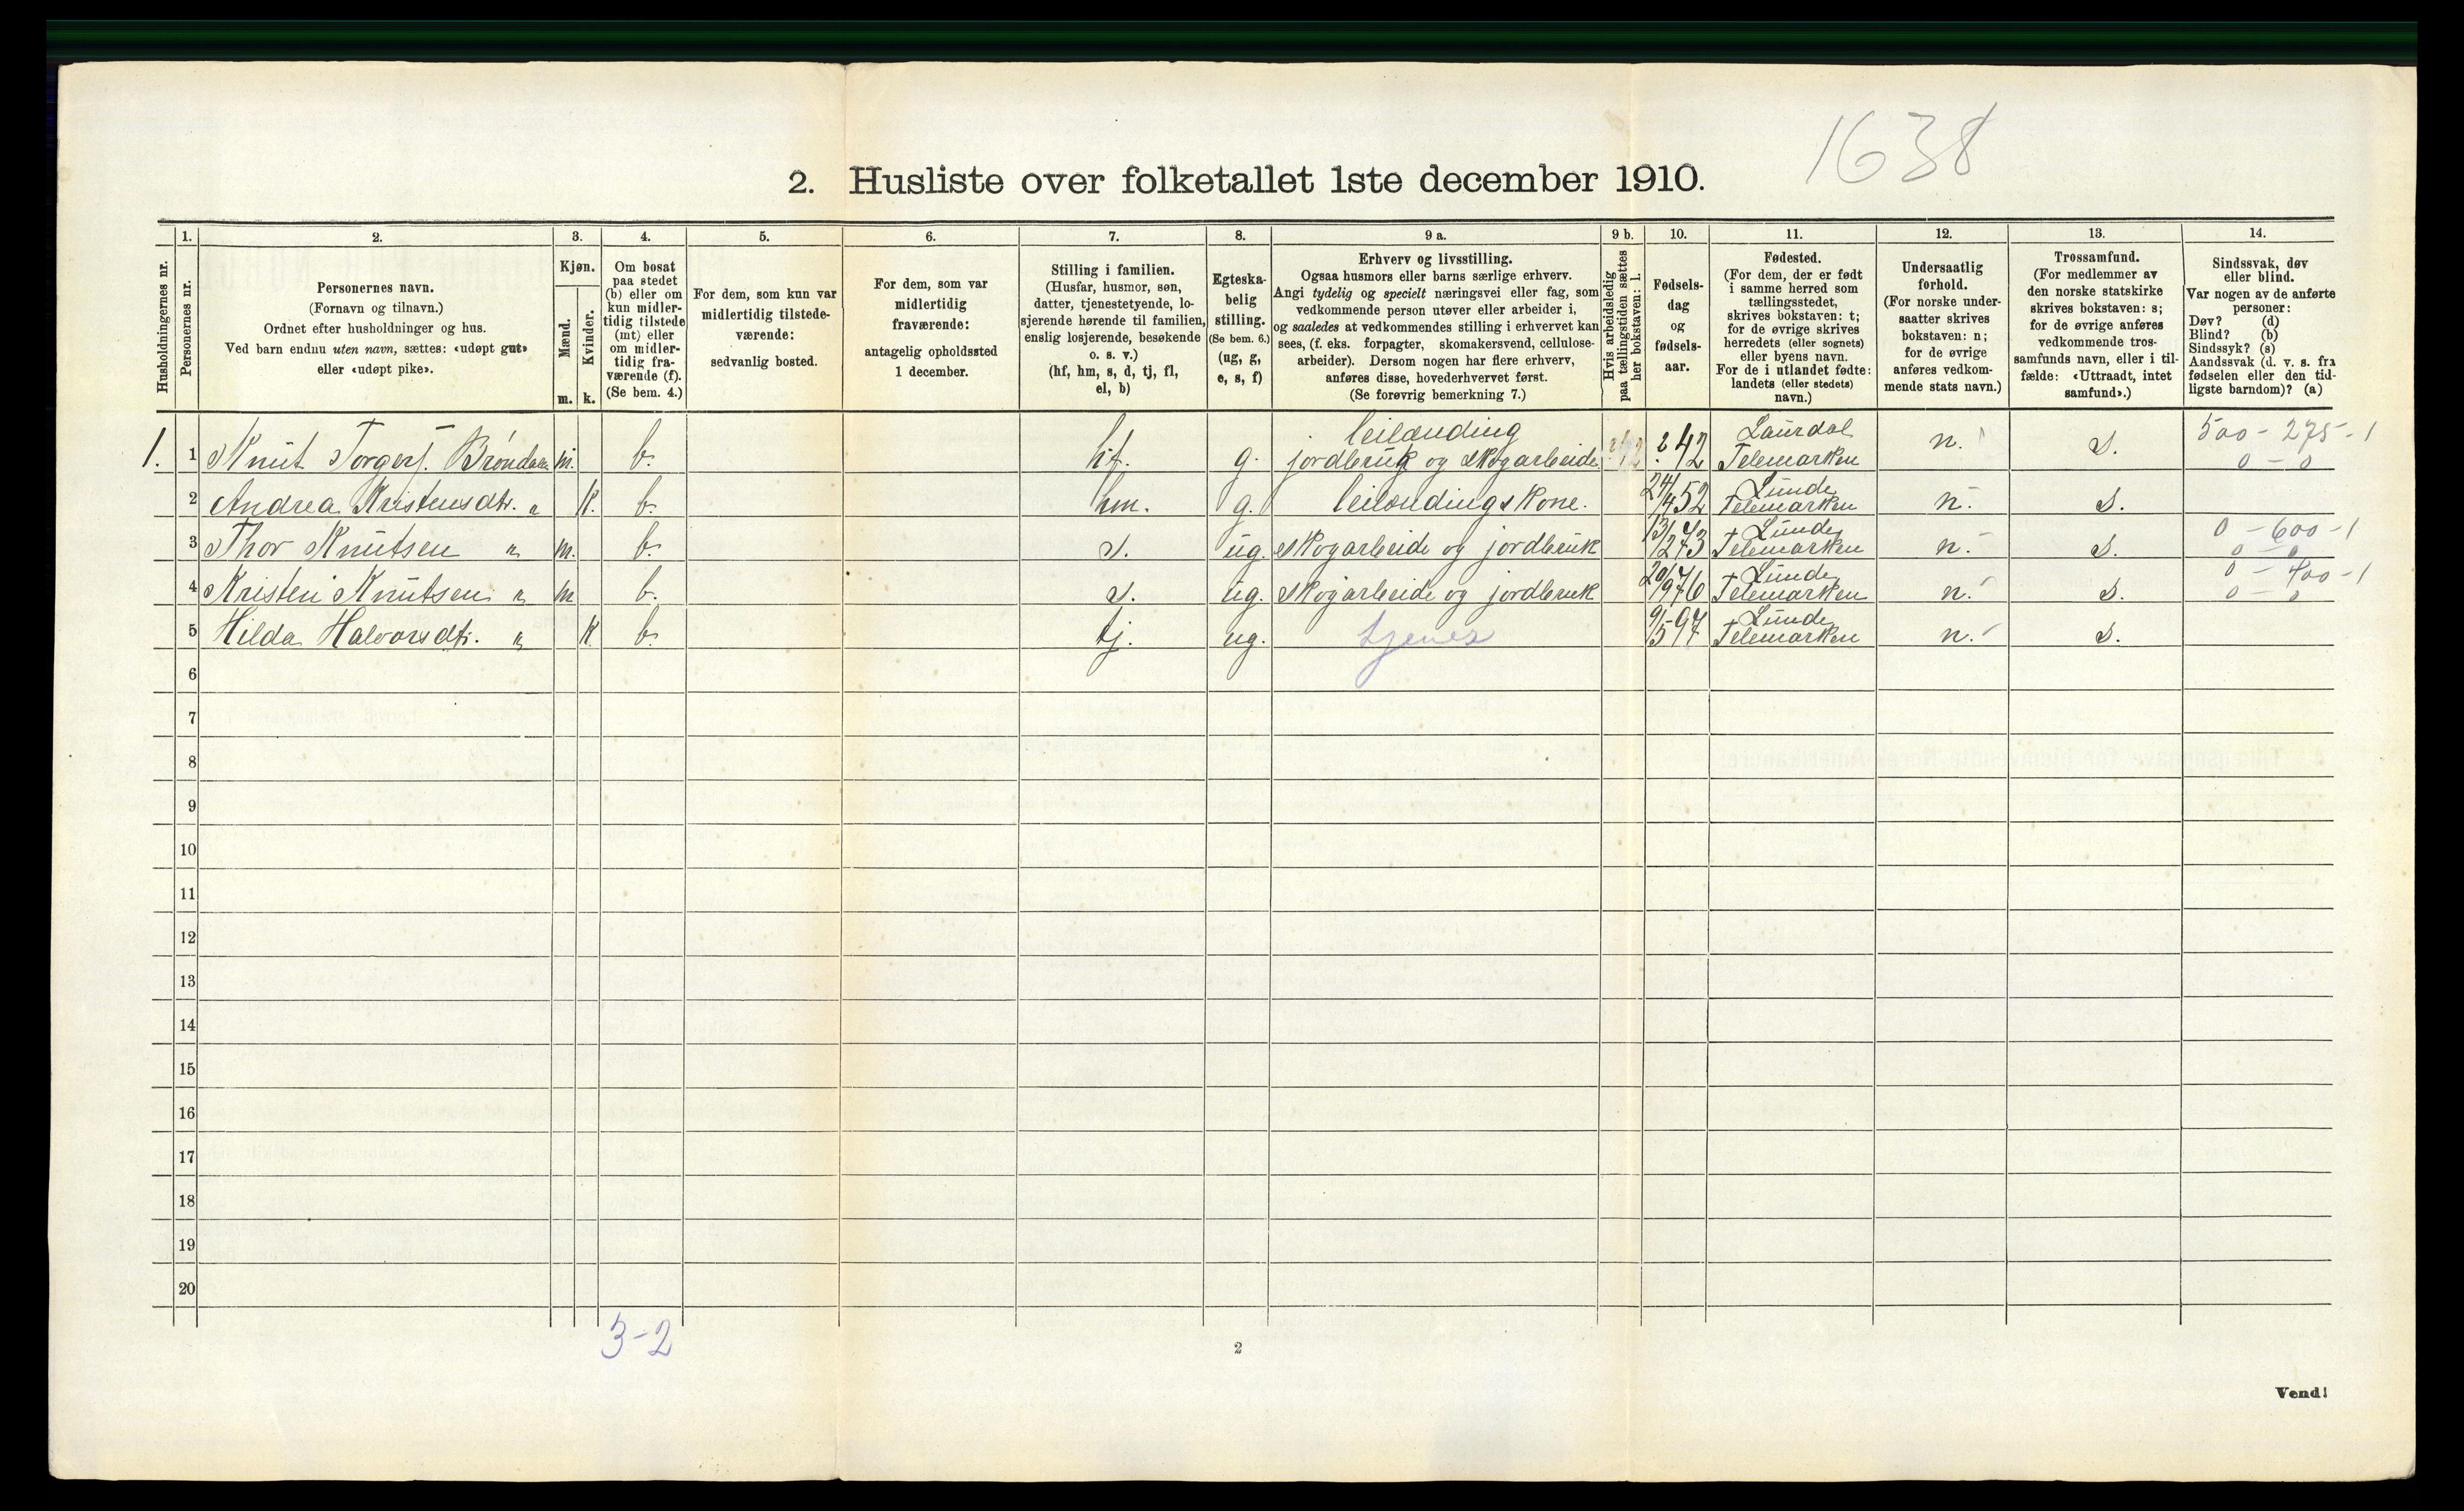 1638
2. Husliste over folketallet 1ste december 1910.
Husholdningernes nr.
1.
Personernes nr.
2.
Personernes navn.
(Fornavn og tilnavn.)
Ordnet efter husholdninger og hus.
Ved barn endnu uten navn, sættes: «udøpt gut»
eller «udøpt pike».
3.
Kjøn.
Mænd.
m.
Kvinder.
k.
4.
Om bosat
paa stedet
(b) eller om
kun midler-
tidig tilstede
(mt) eller
om midler-
tidig fra-
værende (f).
(Se bem. 4.)
5.
For dem, som kun var
midlertidig tilstede-
værende:
sedvanlig bosted.
6.
For dem, som var
midlertidig
fraværende:
antagelig opholdssted
1 december.
7.
Stilling i familien.
(Husfar, husmor, søn,
datter, tjenestetyende, lo-
sjerende hørende til familien,
enslig losjerende, besøkende
o. s. v.)
(hf, hm, s, d, tj, fl,
el, b)
8.
Egteska-
belig
stilling.
(Se bem. 6.)
(ug, g,
e, s, f)
9 a.
Erhverv og livsstilling.
Ogsaa husmors eller barns særlige erhverv.
Angi tydelig og specielt næringsvei eller fag, som
vedkommende person utøver eller arbeider i,
og saaledes at vedkommendes stilling i erhvervet kan
sees, (f. eks. forpagter, skomakersvend, cellulose-
arbeider). Dersom nogen har flere erhverv,
anføres disse, hovederhvervet først.
(Se forøvrig bemerkning 7.)
9 b.
Hvis arbeidsledig
paa tællingstiden sættes
her bokstaven: l.
10.
Fødsels-
dag
og
fødsels-
aar.
11.
Fødested.
(For dem, der er født
i samme herred som
tællingsstedet,
skrives bokstaven: t;
for de øvrige skrives
herredets (eller sognets)
eller byens navn.
For de i utlandet fødte:
landets (eller stedets)
navn.)
12.
Undersaatlig
forhold.
(For norske under-
saatter skrives
bokstaven: n;
for de øvrige
anføres vedkom-
mende stats navn.)
13.
Trossamfund.
(For medlemmer av
den norske statskirke
skrives bokstaven: s;
for de øvrige anføres
vedkommende tros-
samfunds navn, eller i til-
fælde: «Uttraadt, intet
samfund».)
14.
Sindssvak, døv
eller blind.
Var nogen av de anførte
personer:
Døv? (d)
Blind? (b)
Sindssyk? (s)
Aandssvak (d. v. s. fra
fødselen eller den tid-
ligste barndom)? (a)
leilænding Laurdal 500 - 275 - 1
1. 1 Knut Torgersf. Brøndalen m. b. hf. g. jordbruk og skogarbeide ? 42 Telemarken n. s. 0 - 0
Lunde
2 Andrea Kristensdtr. " K. b. hm. g. leilændingskone. 24/4 52 Telemarken n. s.
Lunde 0 - 600 - 1
3 Thor Knutsen " m. b. s. ug. skogarbeide og jordbruk 13/12 73 Telemarken n. s. 0 - 0
Lunde 0 - 400 - 1
4 Kristen Knutsen " m b. s. ug. skogarbeide og jordbruk 20/9 76 Telemarken n. s. 0 - 0
Lunde
5 Hilda Halvorsdtr. " K b. tj. ug. tjener 9/5 97 Telemarken n. s.
6
7
8
9
10
11
12
13
14
15
16
17
18
19
20
3-2
2
Vend!